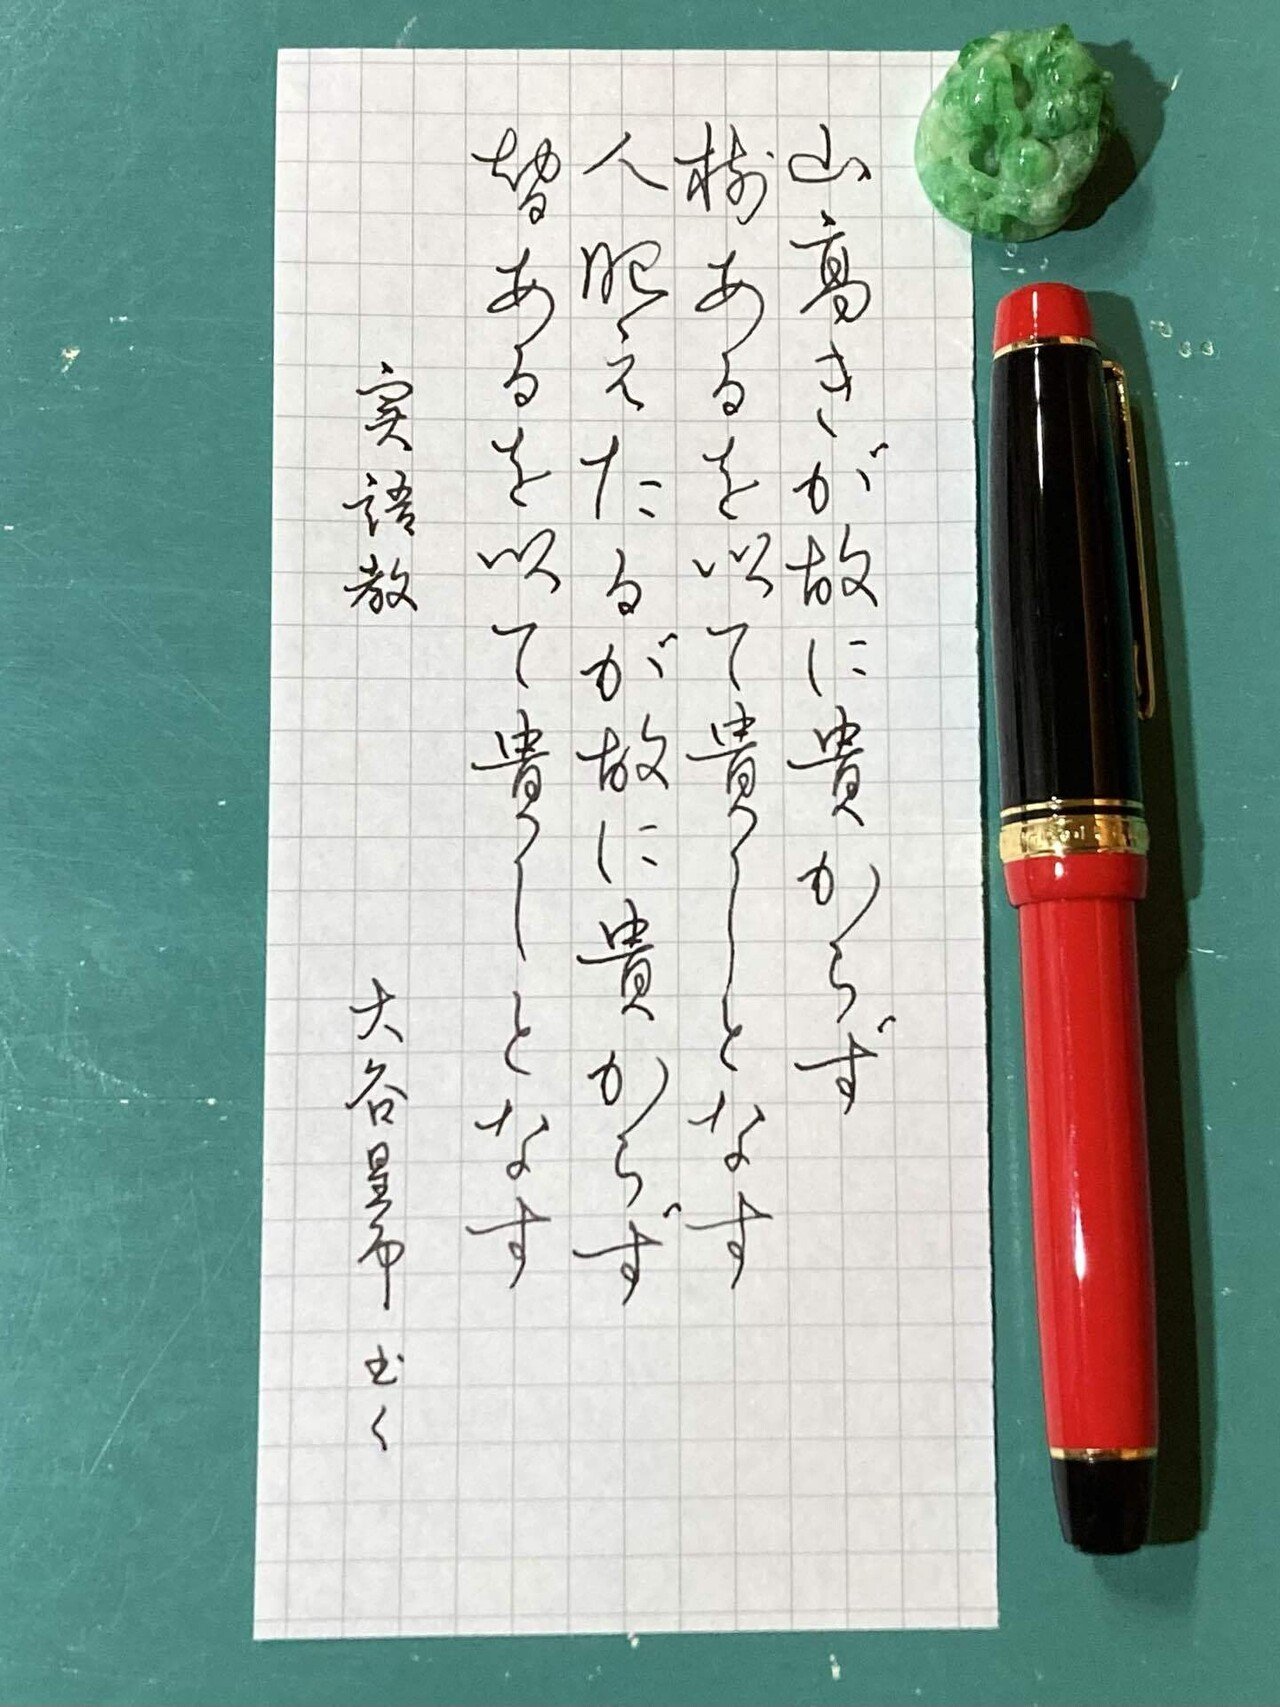 山高きが故に貴からず
樹あるを以て貴しとなす
人肥えたるが故に貴からず
智あるを以て貴しとなす
実語教
大谷 書く